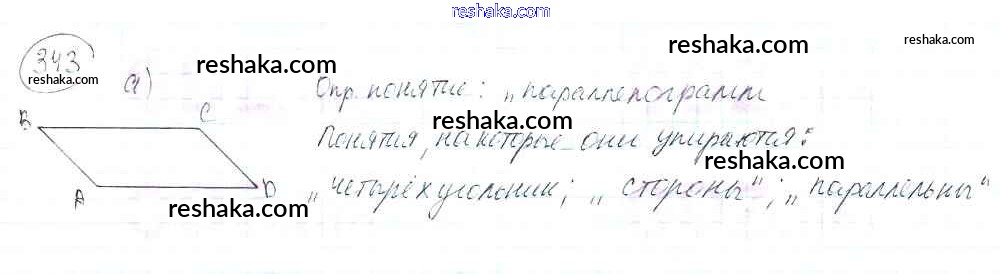 reshaka.com
343
reshaka.com
а)
reshaka.com
Опр. понятие: „параллелограмм
reshaka.com
reshaka.com
B
C
Понятия, на которые они упираются:
reshaka.com
reshaka.com
A
D
„четырёхугольник; „стороны"; „параллельны"
reshaka.com
reshaka.com